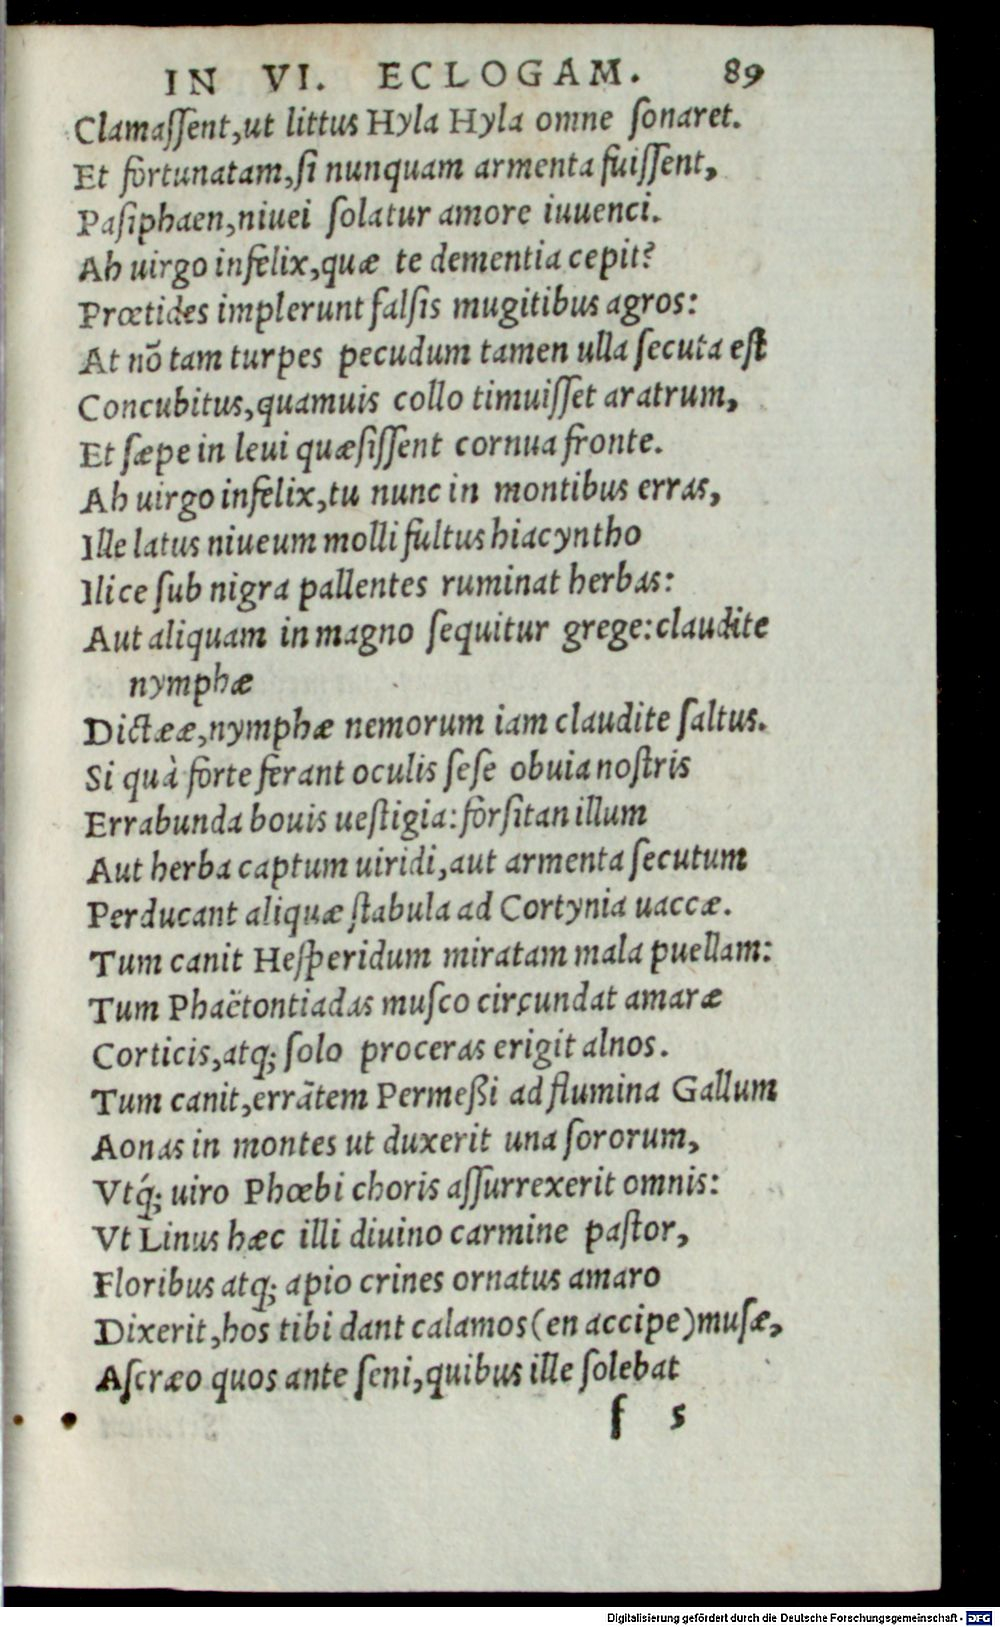 IN VI. ECLOGAM. 89
Clamaſſent,ut littus Hyla Hyla omne ſonaret.
Et fortunatam,ſi nunquam armenta fuiſſent,
Paſiphaen,niuei ſolatur amore iuuenci.
Ah uirgo infelix,quæ te dementia cepit?
Prœtides implerunt falſis mugitibus agros:
At nō tam turpes pecudum tamen ulla ſecuta eſt
Concubitus,quamuis collo timuiſſet aratrum,
Et ſæpe in leui quæſiſſent cornua fronte.
Ah uirgo infelix,tu nunc in montibus erras,
Ille latus niueum molli fultus hiacyntho
Ilice ſub nigra pallentes ruminat herbas:
Aut aliquam in magno ſequitur grege:claudite
nymphæ
Dictææ,nymphæ nemorum iam claudite ſaltus.
Si quà forte ferant oculis ſeſe obuia noſtris
Errabunda bouis ueſtigia:forſitan illum
Aut herba captum uiridi,aut armenta ſecutum
Perducant aliquæ ſtabula ad Cortynia uaccæ.
Tum canit Heſperidum miratam mala puellam:
Tum Phaëtontiadas muſco circundat amaræ
Corticis,atq; ſolo proceras erigit alnos.
Tum canit,errātem Permeßi ad flumina Gallum
Aonas in montes ut duxerit una ſororum,
Vtq́; uiro Phœbi choris aſſurrexerit omnis:
Vt Linus hæc illi diuino carmine paſtor,
Floribus atq; apio crines ornatus amaro
Dixerit,hos tibi dant calamos(en accipe)muſæ,
Aſcræo quos ante ſeni,quibus ille ſolebat
f 5
Digitalisierung gefördert durch die Deutsche Forschungsgemeinschaft - DFG